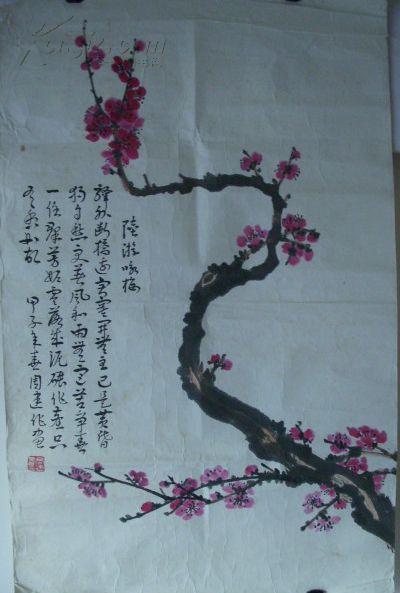 陸游咏梅
驛外断橋边寂寞開無主已是黄昏
獨自愁更著風和雨無意苦爭春
一任群芳妒零落成泥碾作塵只
有香如故
甲子年春周建作画